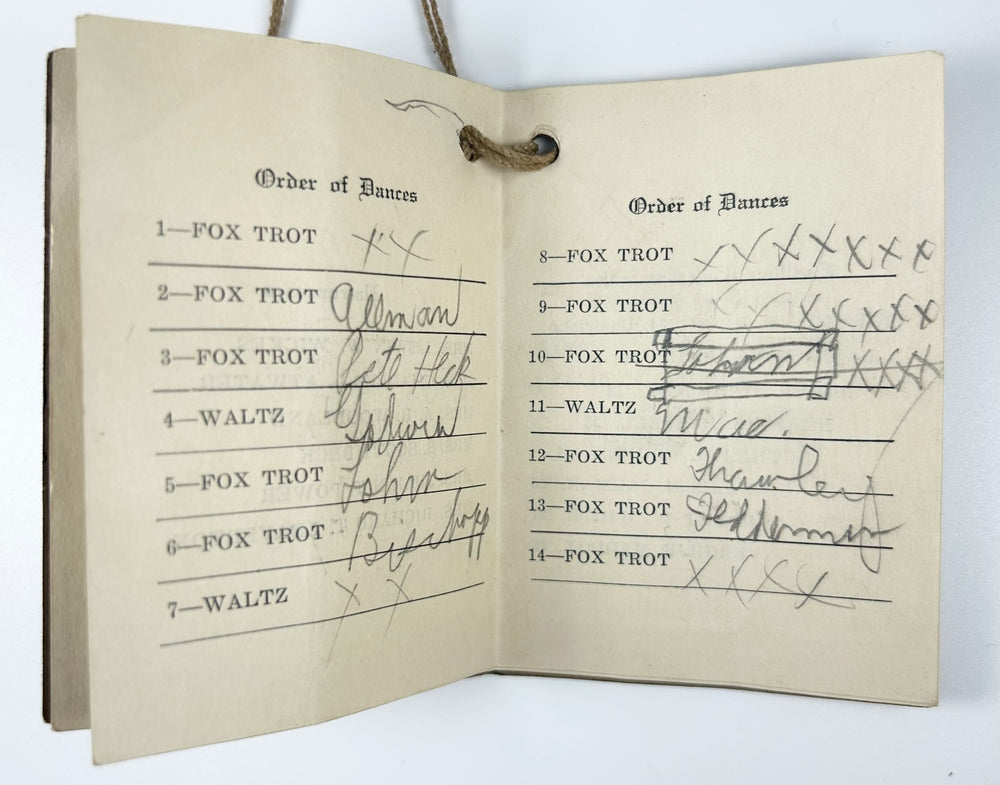 Order of Dances
1—FOX TROT XX
2—FOX TROT Allman
3—FOX TROT Pete Heck
4—WALTZ Godwin
5—FOX TROT John
6—FOX TROT Bischopp
7—WALTZ X X
Order of Dances
8—FOX TROT X X X X X X X
9—FOX TROT X X X X X X X
10—FOX TROT XXXX
11—WALTZ Mac.
12—FOX TROT Thawley
13—FOX TROT
14—FOX TROT X X X X